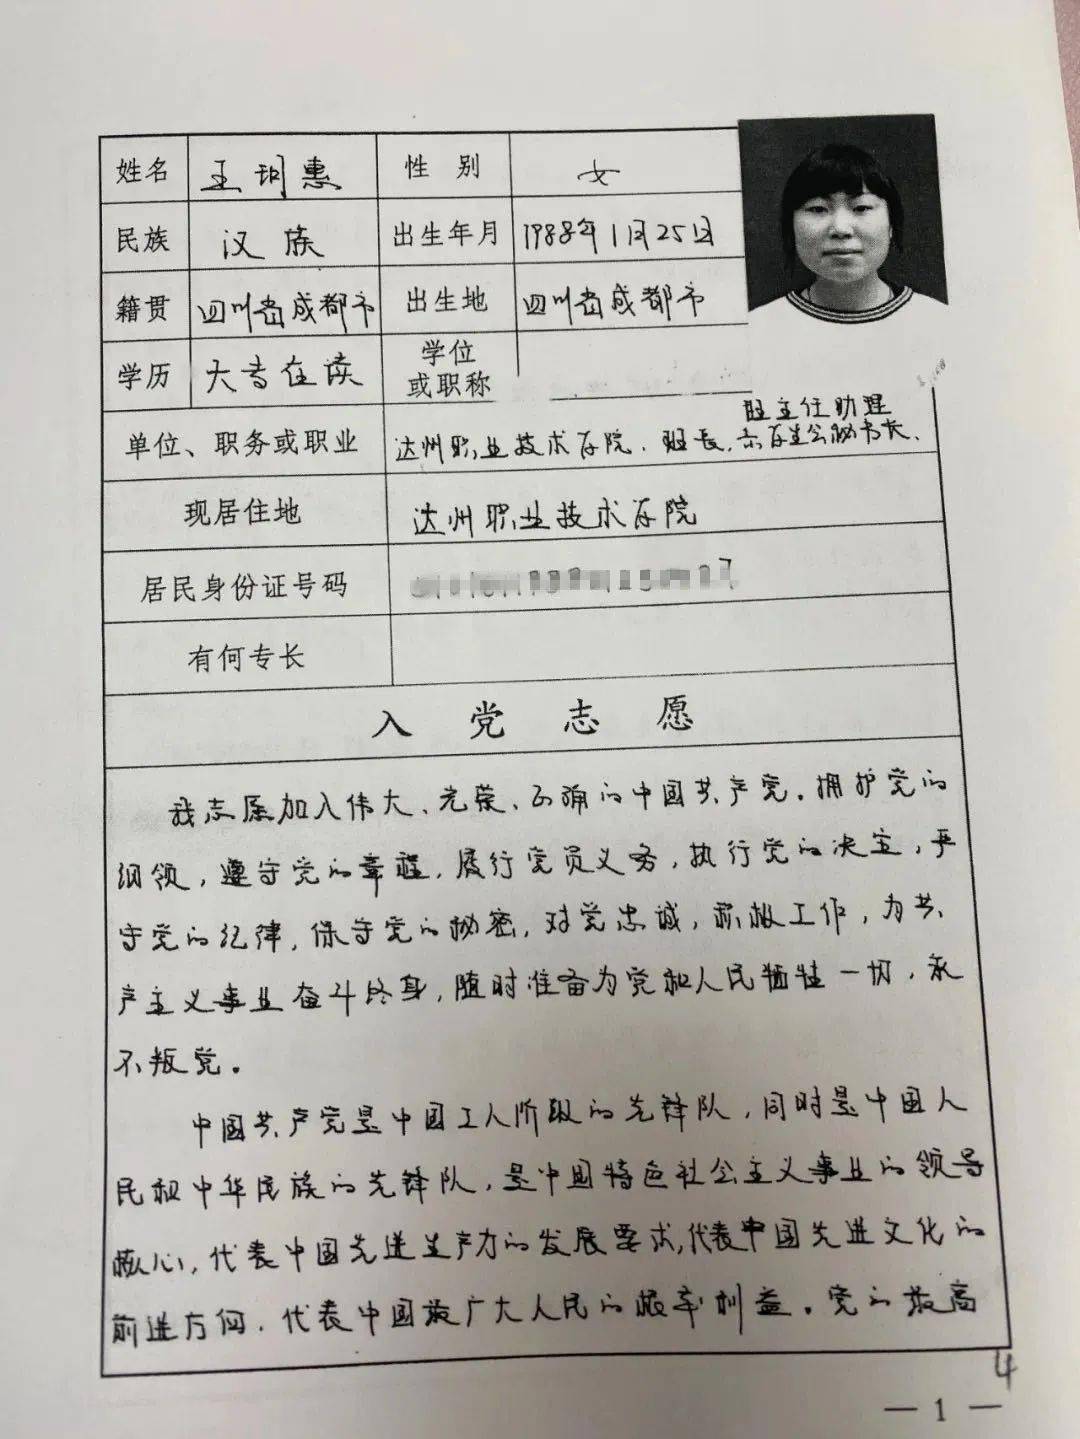 姓名 王玥惠 性别 女
民族 汉族 出生年月 1988年1月25日
籍贯 四川省成都市 出生地 四川省成都市
学历 大专在读 学位或职称
班主任助理
单位、职务或职业 达州职业技术学院、班长、
现居住地 达州职业技术学院
居民身份证号码
有何专长
入党志愿
我志愿加入伟大、光荣、正确的中国共产党。拥护党的
纲领，遵守党的章程，履行党员义务，执行党的决定，严
守党的纪律，保守党的秘密，对党忠诚，积极工作，为共
产主义事业奋斗终身，随时准备为党和人民牺牲一切，永
不叛党。
中国共产党是中国工人阶级的先锋队，同时是中国人
民和中华民族的先锋队，是中国特色社会主义事业的领导
核心，代表中国先进生产力的发展要求，代表中国先进文化的
前进方向，代表中国最广大人民的根本利益。党的最高
4
— 1 —